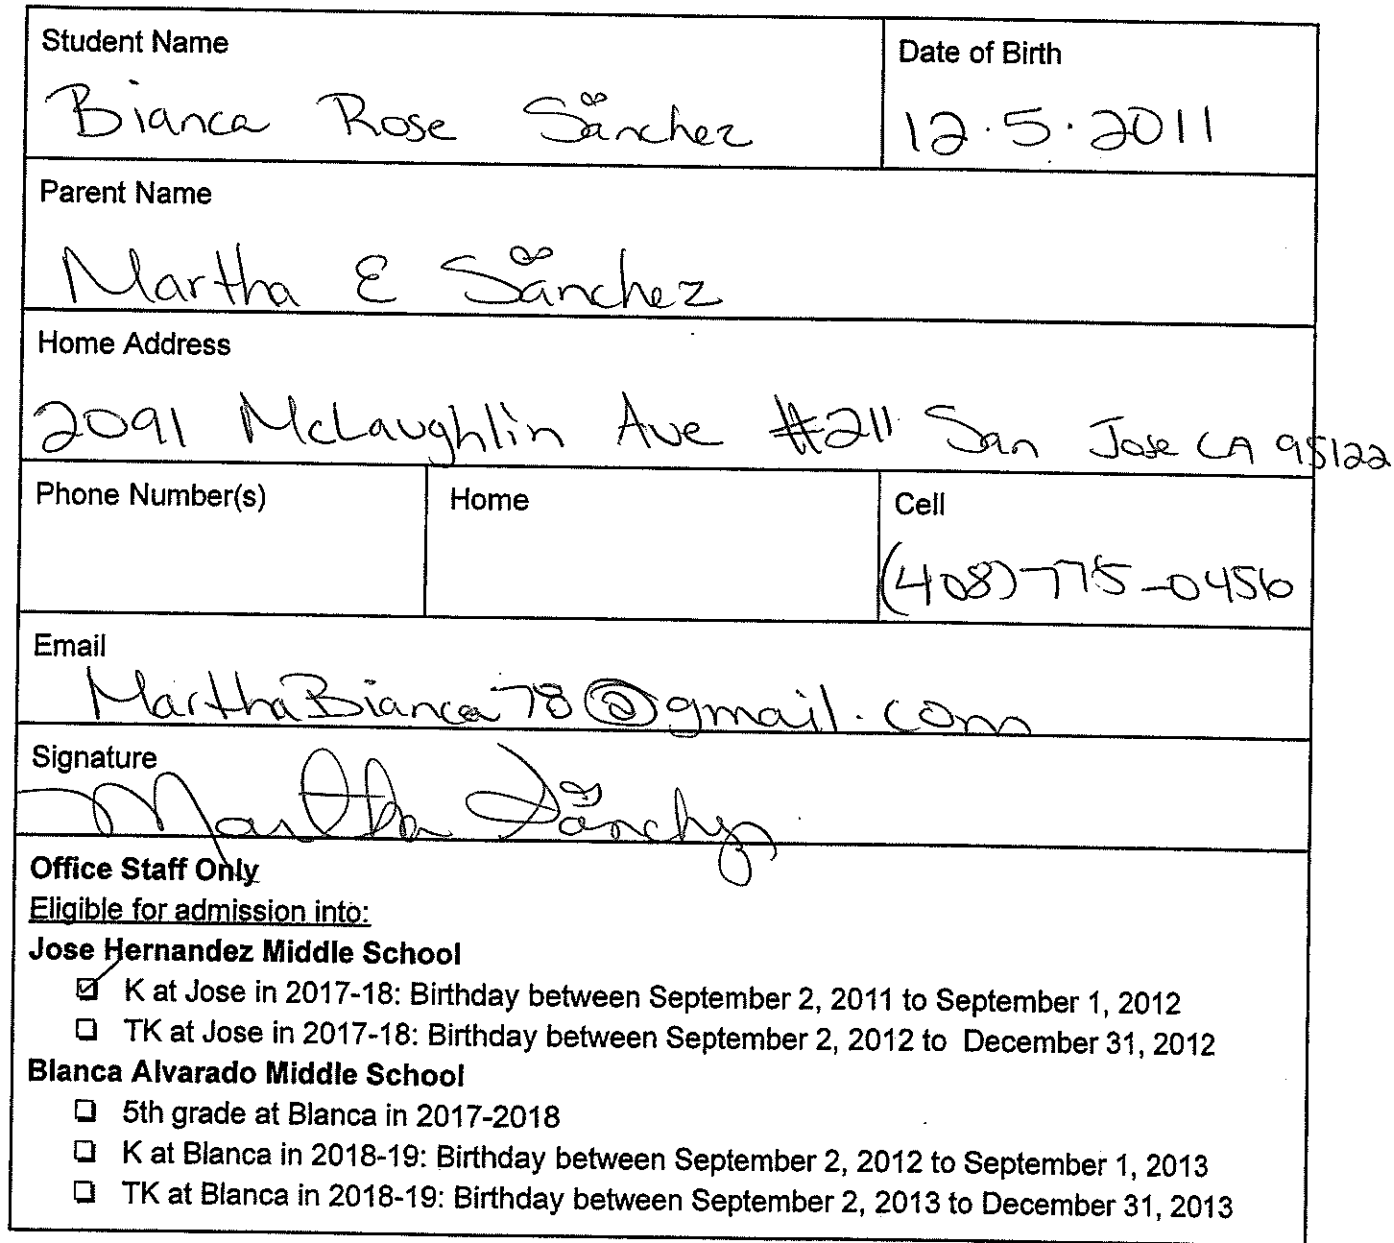 Student Name
Date of Birth
Bianca Rose Sanchez
12.5.2011
Parent Name
Martha E Sanchez
Home Address
2091 McLaughlin Ave #211 San Jose CA 95122
Phone Number(s)
Home
Cell
(408)775-0456
Email
MarthaBianca78@gmail.com
Signature
Martha Sanchez
Office Staff Only
Eligible for admission into:
Jose Hernandez Middle School
☑ K at Jose in 2017-18: Birthday between September 2, 2011 to September 1, 2012
❑ TK at Jose in 2017-18: Birthday between September 2, 2012 to December 31, 2012
Blanca Alvarado Middle School
❑ 5th grade at Blanca in 2017-2018
❑ K at Blanca in 2018-19: Birthday between September 2, 2012 to September 1, 2013
❑ TK at Blanca in 2018-19: Birthday between September 2, 2013 to December 31, 2013